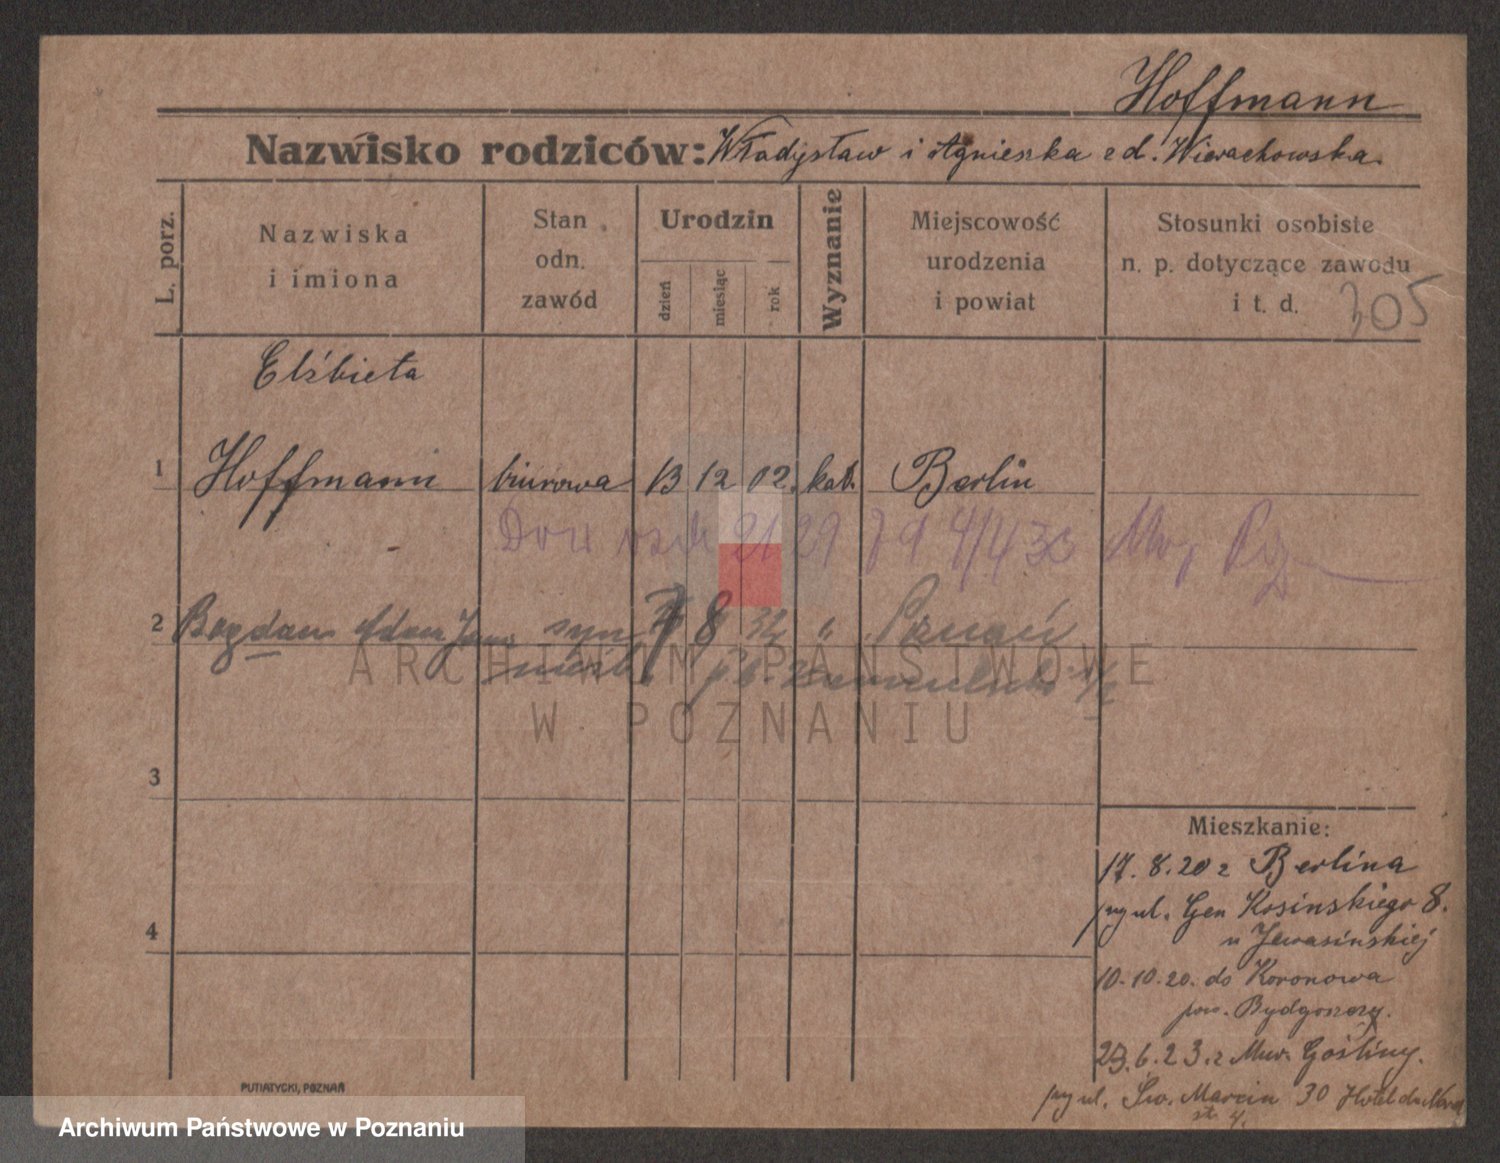 Hoffmann
Nazwisko rodziców: Władysław i Agnieszka zd. Wierachowska
L. porz.
Nazwiska
i imiona
Stan
odn.
zawód
Urodzin
dzień
miesiąc
rok
Wyznanie
Miejscowość
urodzenia
i powiat
Stosunki osobiste
n. p. dotyczące zawodu
i t. d. 305
Elżbieta
1 Hoffmann biurowa 13 12 02. kat. Berlin
Dow 2129 79 4/4 33
2 Bogdan Adam syn 7 8 32 " Poznań
ARCHIWUM PAŃSTWOWE
W POZNANIU
3
4
Mieszkanie:
17. 8. 20 z Berlina
przy ul. Gen Kosinskiego 8.
u Jewasińskiej
10. 10. 20. do Koronowa
pow. Bydgoszcz.
23. 6. 23. z Mur. Gośliny.
przy ul. Św. Marcin 30 Hotel du Nord
st. 4.
PUTIATYCKI, POZNAŃ
Archiwum Państwowe w Poznaniu